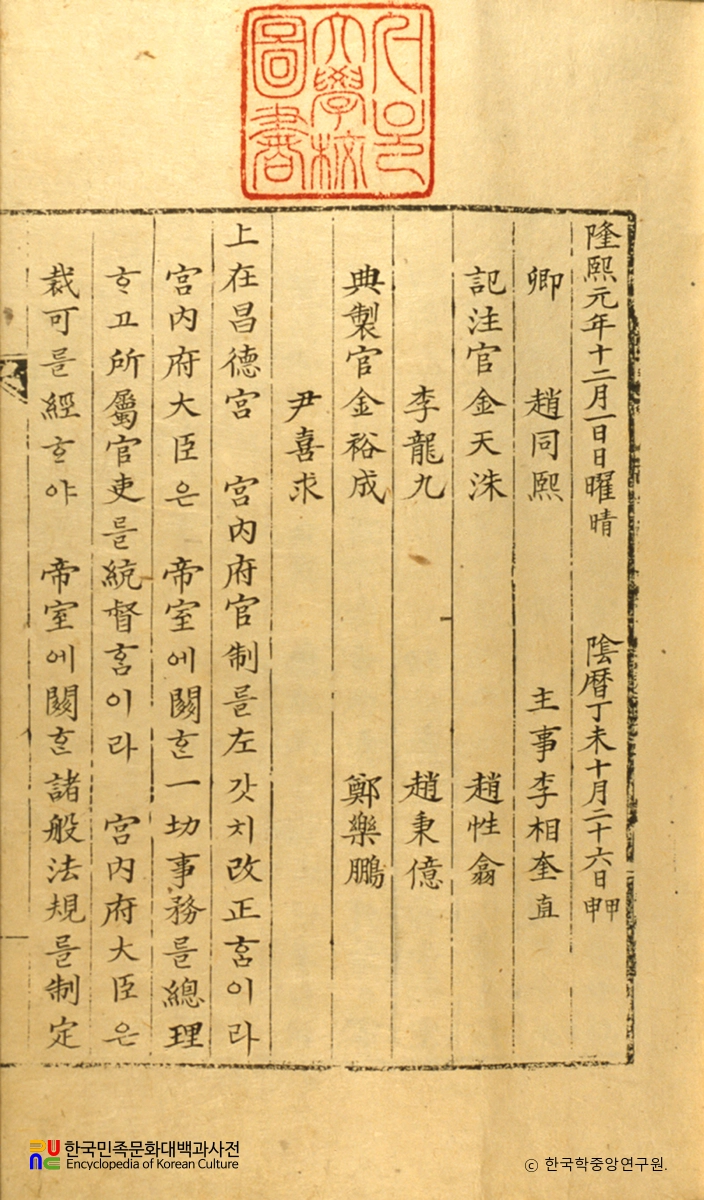 서울
大學校
圖書
隆熙元年十二月一日日曜晴 陰曆丁未十月二十六日甲申
卿 趙同熙 主事李相奎直
記注官金天洙 趙性翕
李龍九 趙秉億
典製官金裕成 鄭樂鵬
尹喜求
上在昌德宮 宮內府官制를左갓치改正홈이라
宮內府大臣은 帝室에關ᄒᆞᆫ一切事務를總理
ᄒᆞ고所屬官吏를統督홈이라 宮內府大臣은
裁可를經ᄒᆞ야 帝室에關ᄒᆞᆫ諸般法規를制定
한국민족문화대백과사전
Encyclopedia of Korean Culture
ⓒ 한국학중앙연구원.